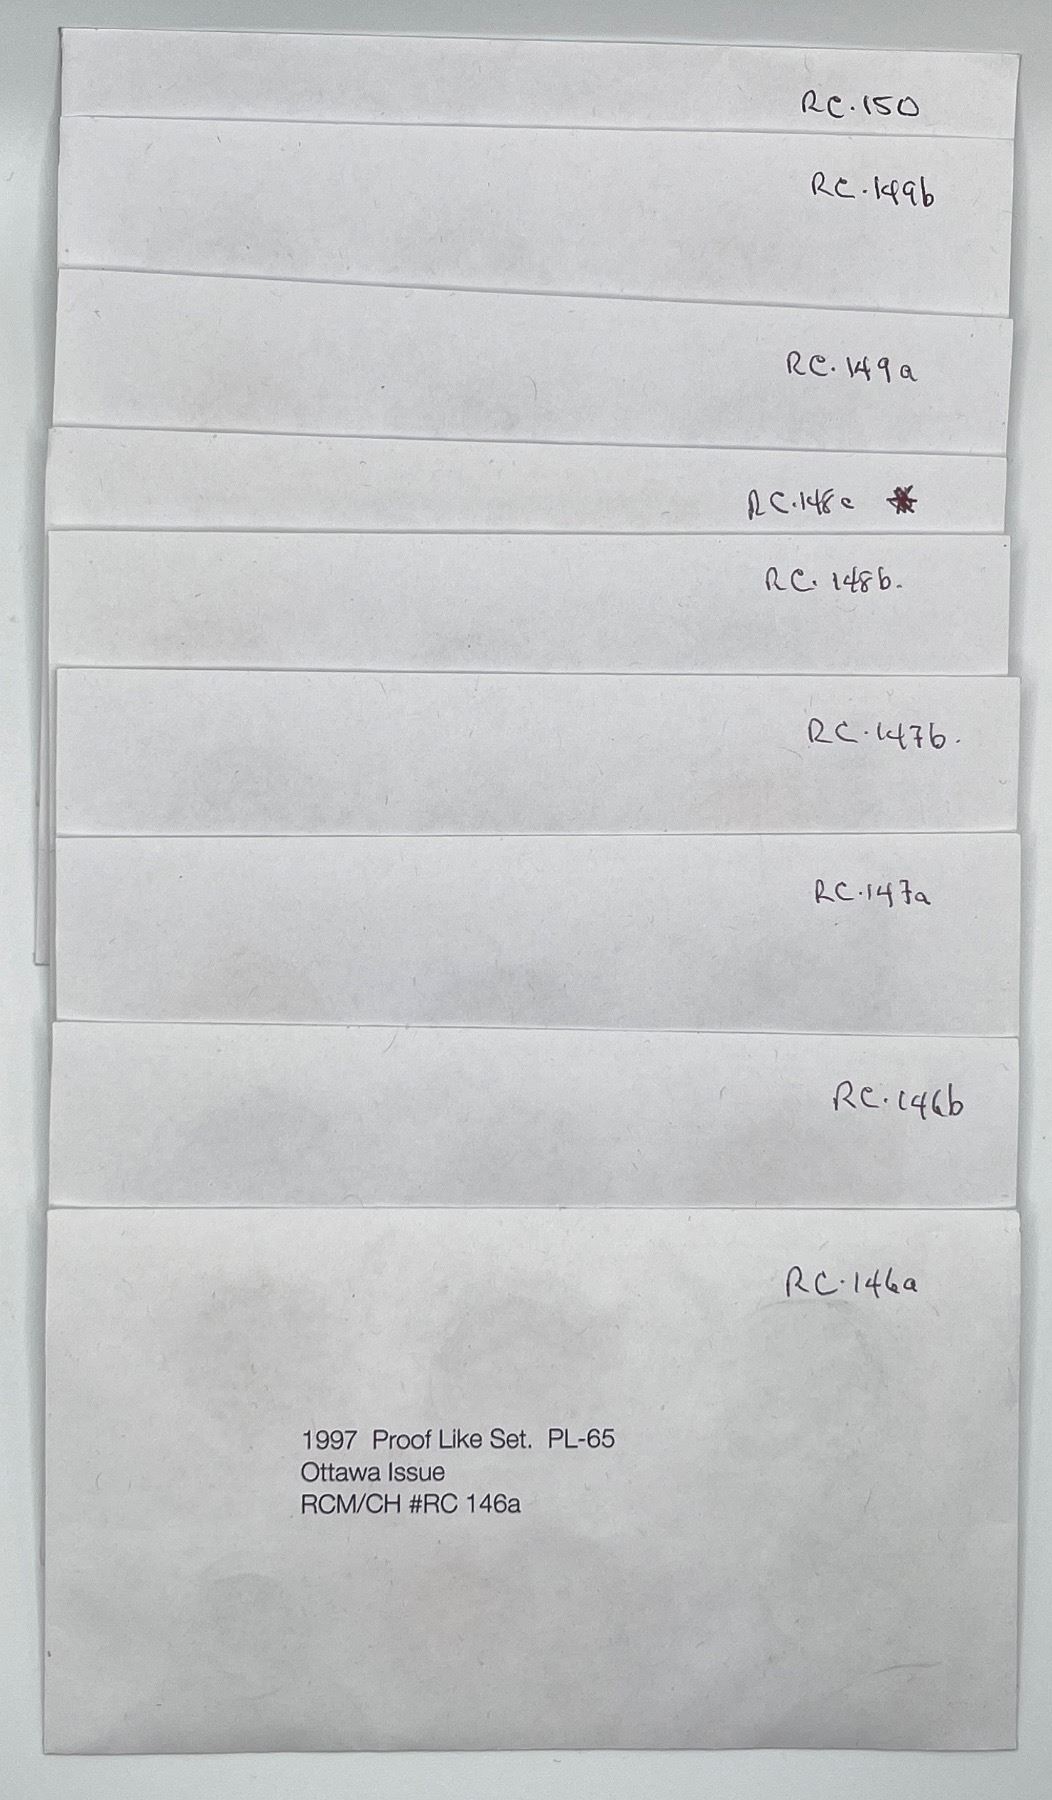 RC.150
RC.149b
RC.149a
RC.148c *
RC.148b.
RC.147b.
RC.147a
RC.146b
RC.146a
1997 Proof Like Set. PL-65
Ottawa Issue
RCM/CH #RC 146a